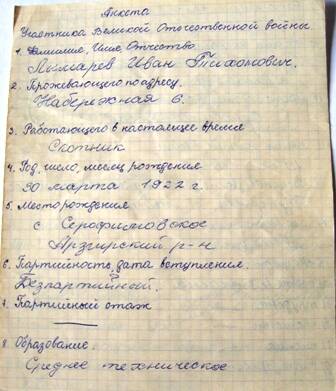 Анкета
Участника Великой Отечественной войны.
1. Фамилия, Имя, Отчество
Лымарев Иван Тихонович.
2. Проживающего по адресу.
Набережная 6.
3. Работающего в настоящее время
Скотник
4. Год, число, месяц рождения
30 марта 1922 г.
5. Место рождения
с Серафимовское
Арзгирский р-н
6. Партийность, дата вступления.
Безпартийный.
7. Партийный стаж
8. Образование.
Среднее техническое